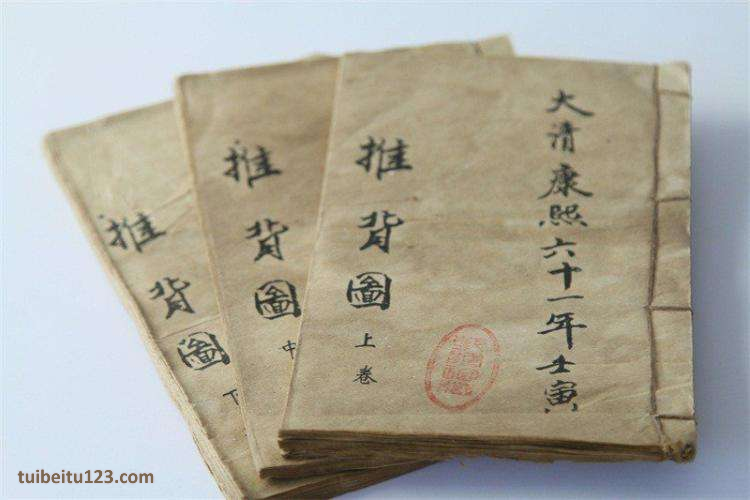 大清康熙六十一年壬寅
推背圖
上卷
推背圖
中
推背圖
下
tuibeitu123.com